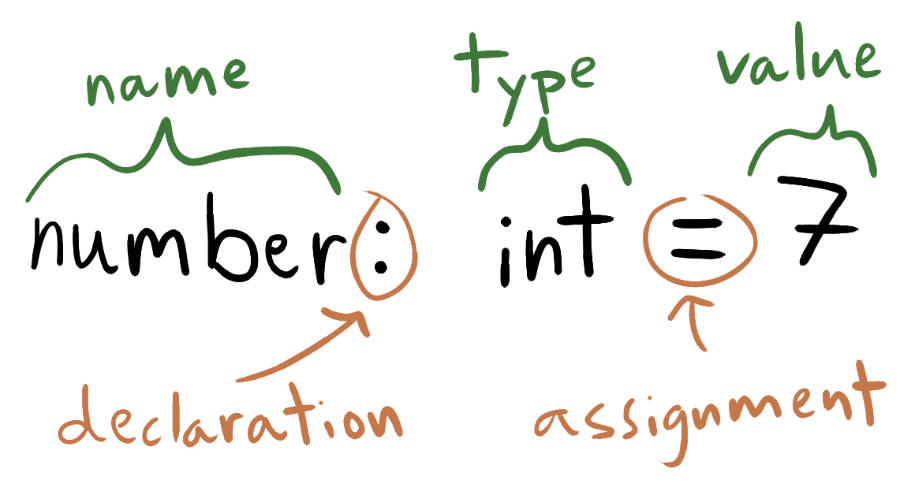 name type value
number: int = 7
declaration assignment